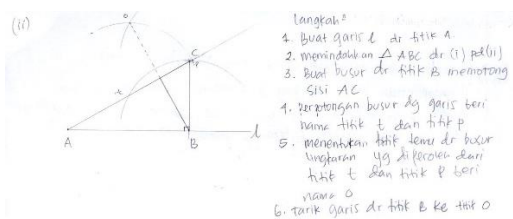 (ii)
O
C
P
t
A
B
l
Langkah²
1. Buat garis l dr titik A
2. memindahkan △ ABC dr (i) pd (ii)
3. Buat busur dr titik B memotong
sisi AC
4. Perpotongan busur dg garis beri
nama titik t dan titik p
5. menentukan titik temu dr busur
lingkaran yg diperoleh dari
titik t dan titik P beri
nama O
6. Tarik garis dr titik B ke titik O